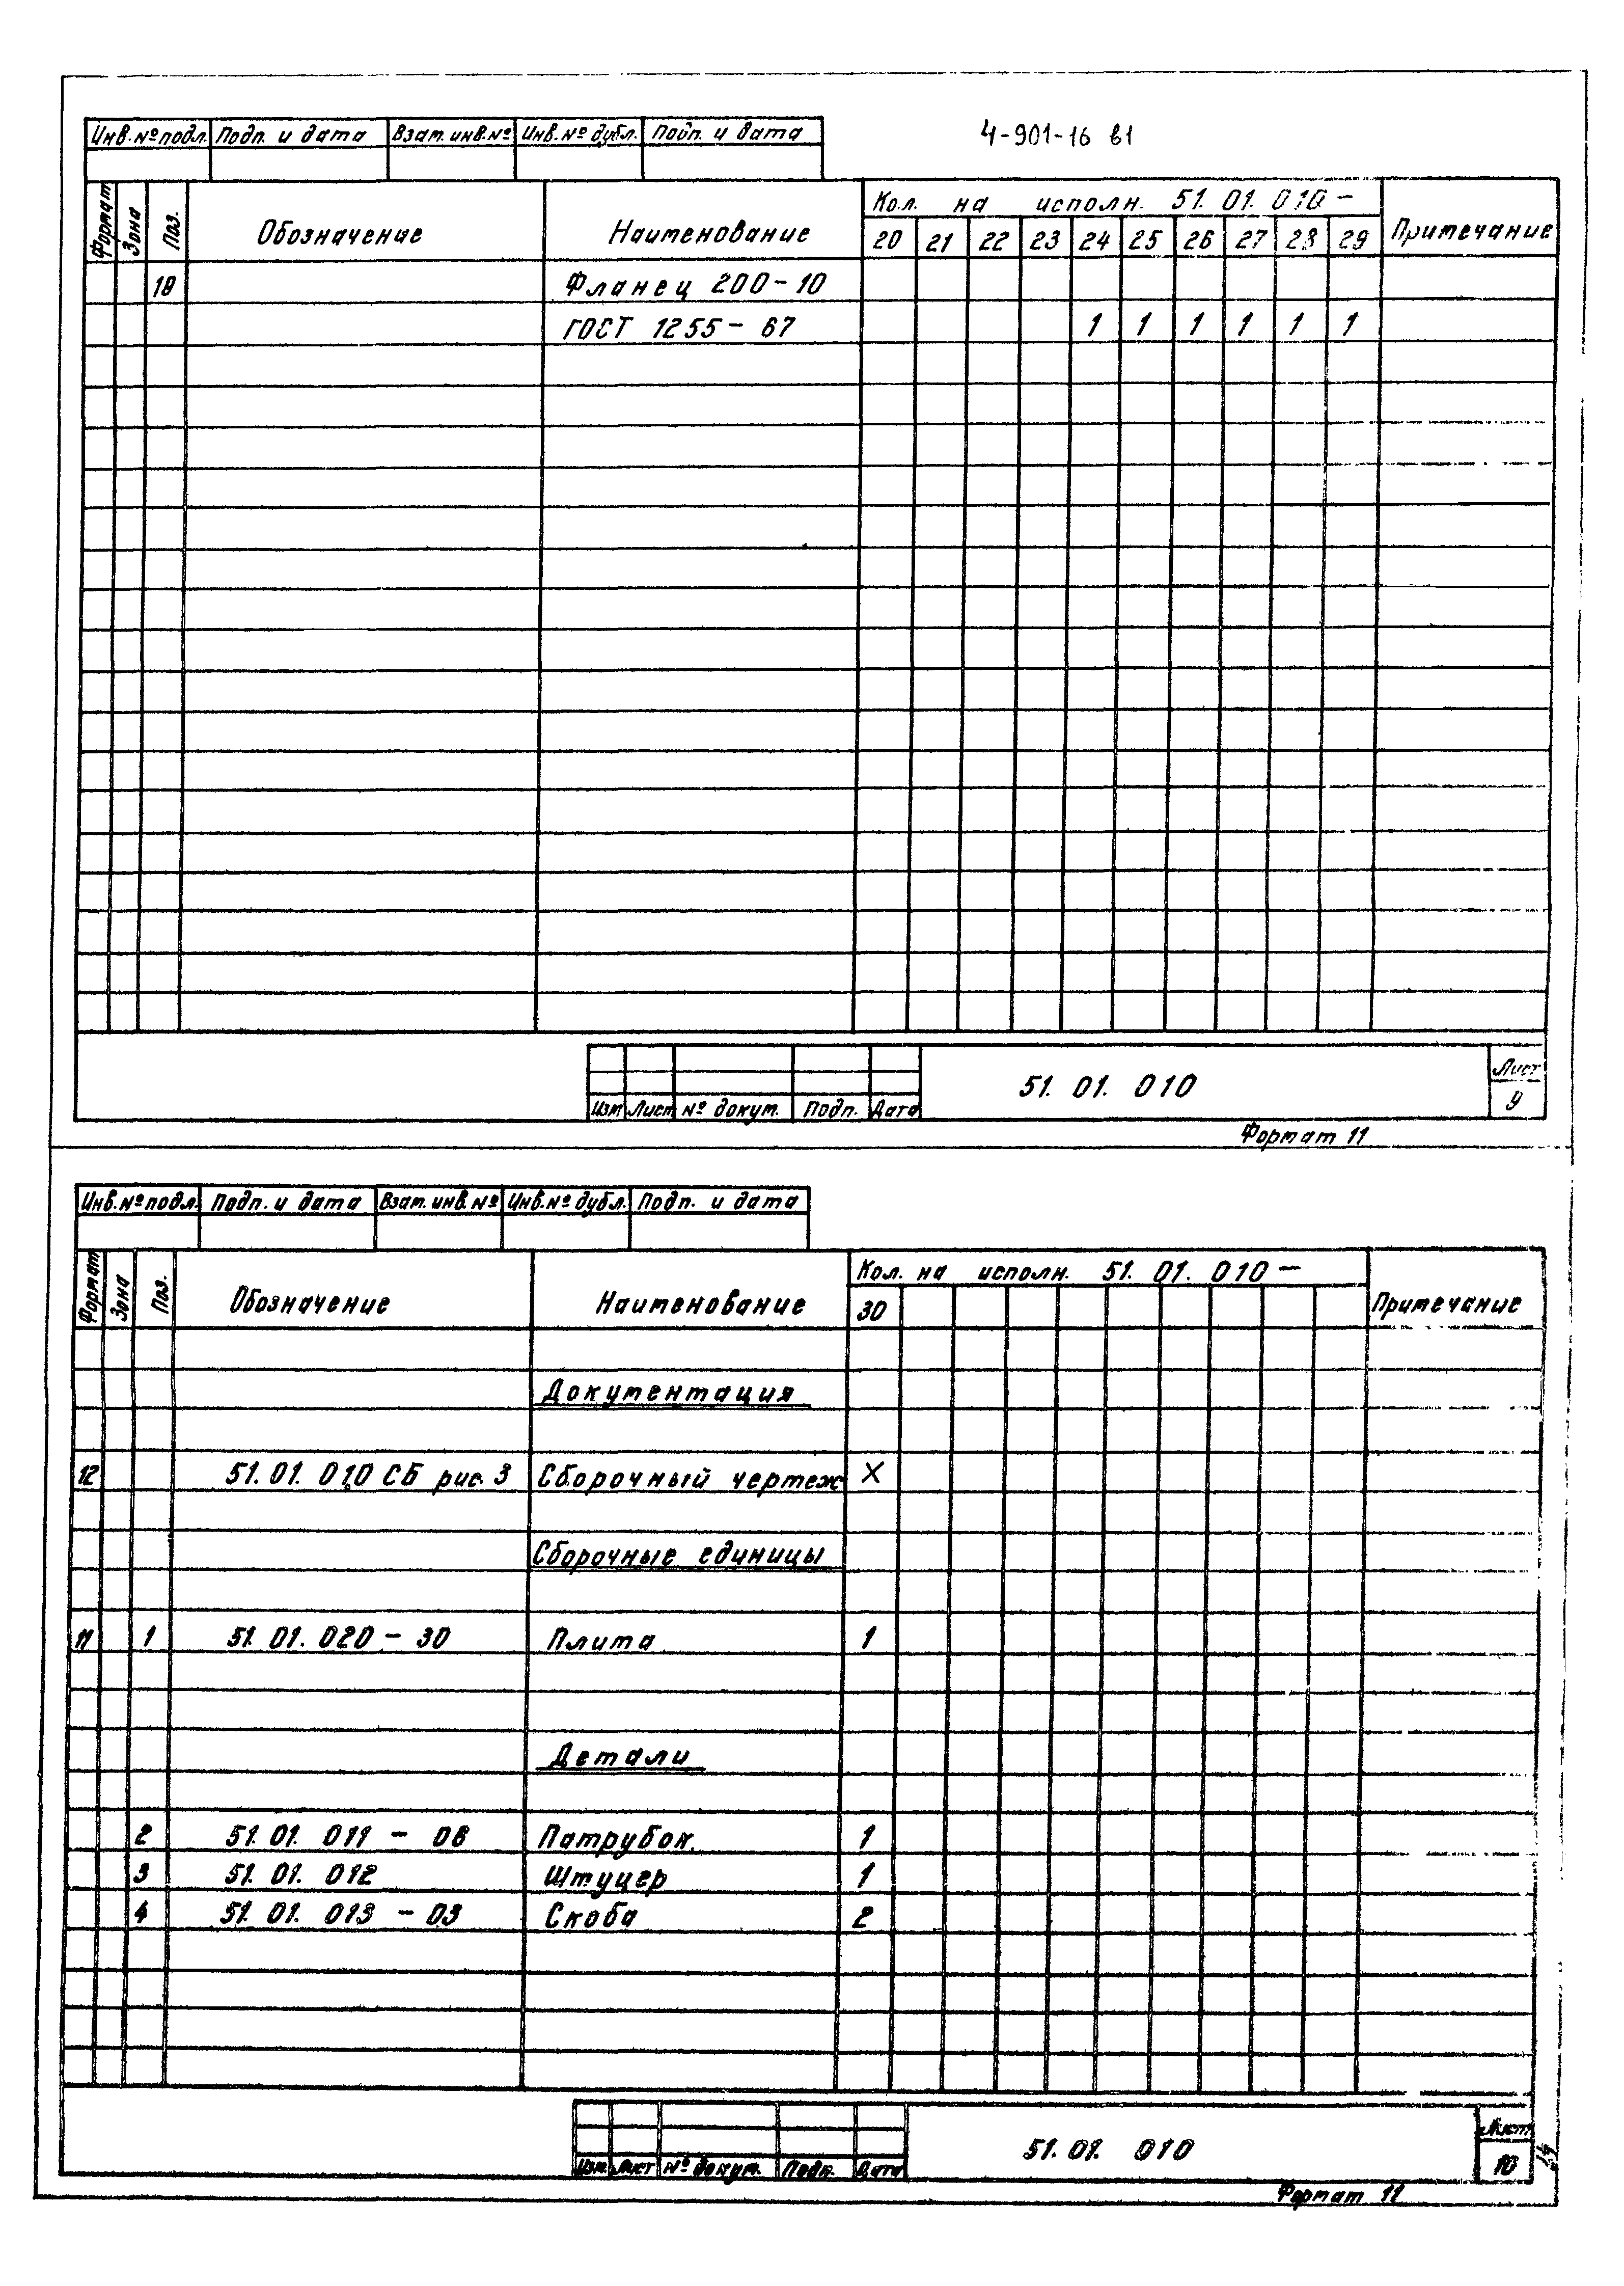 4-901-16 в1
Инв.№подл. Подп. и дата Взам. инв.№ Инв.№ дубл. Подп. и дата
Формат Зона Поз. Обозначение Наименование Кол. на исполн. 51. 01. 010 – Примечание
20 21 22 23 24 25 26 27 28 29
18 Фланец 200–10
ГОСТ 1255– 67 1 1 1 1 1 1
51. 01. 010 Лист
Изм Лист № докум. Подп. Дата 9
Формат 11
Инв.№подл. Подп. и дата Взам. инв.№ Инв.№ дубл. Подп. и дата
Формат Зона Поз. Обозначение Наименование Кол. на исполн. 51. 01. 010 – Примечание
30
Документация
12 51. 01. 010 СБ рис. 3 Сборочный чертеж X
Сборочные единицы
11 1 51. 01. 020 – 30 Плита 1
Детали
2 51. 01. 011 – 06 Патрубок 1
3 51. 01. 012 Штуцер 1
4 51. 01. 013 – 03 Скоба 2
51. 01. 010 Лист
Изм. Лист № докум. Подп. Дата 10
Формат 11